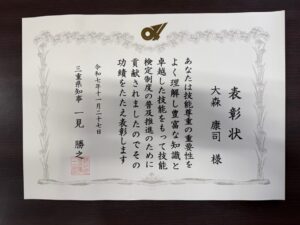 表彰状
大森 康司 様
あなたは技能尊重の重要性を
よく理解し豊富な知識と
卓越した技能をもって技能
検定制度の普及推進のために
貢献されましたのでその
功績をたたえ表彰します
令和七年十一月二十七日
三重県知事 一見 勝之